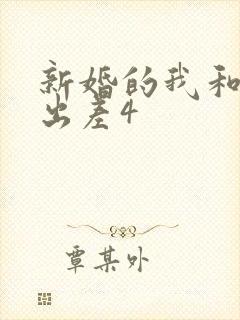 新婚的我和
出差4
覃某外